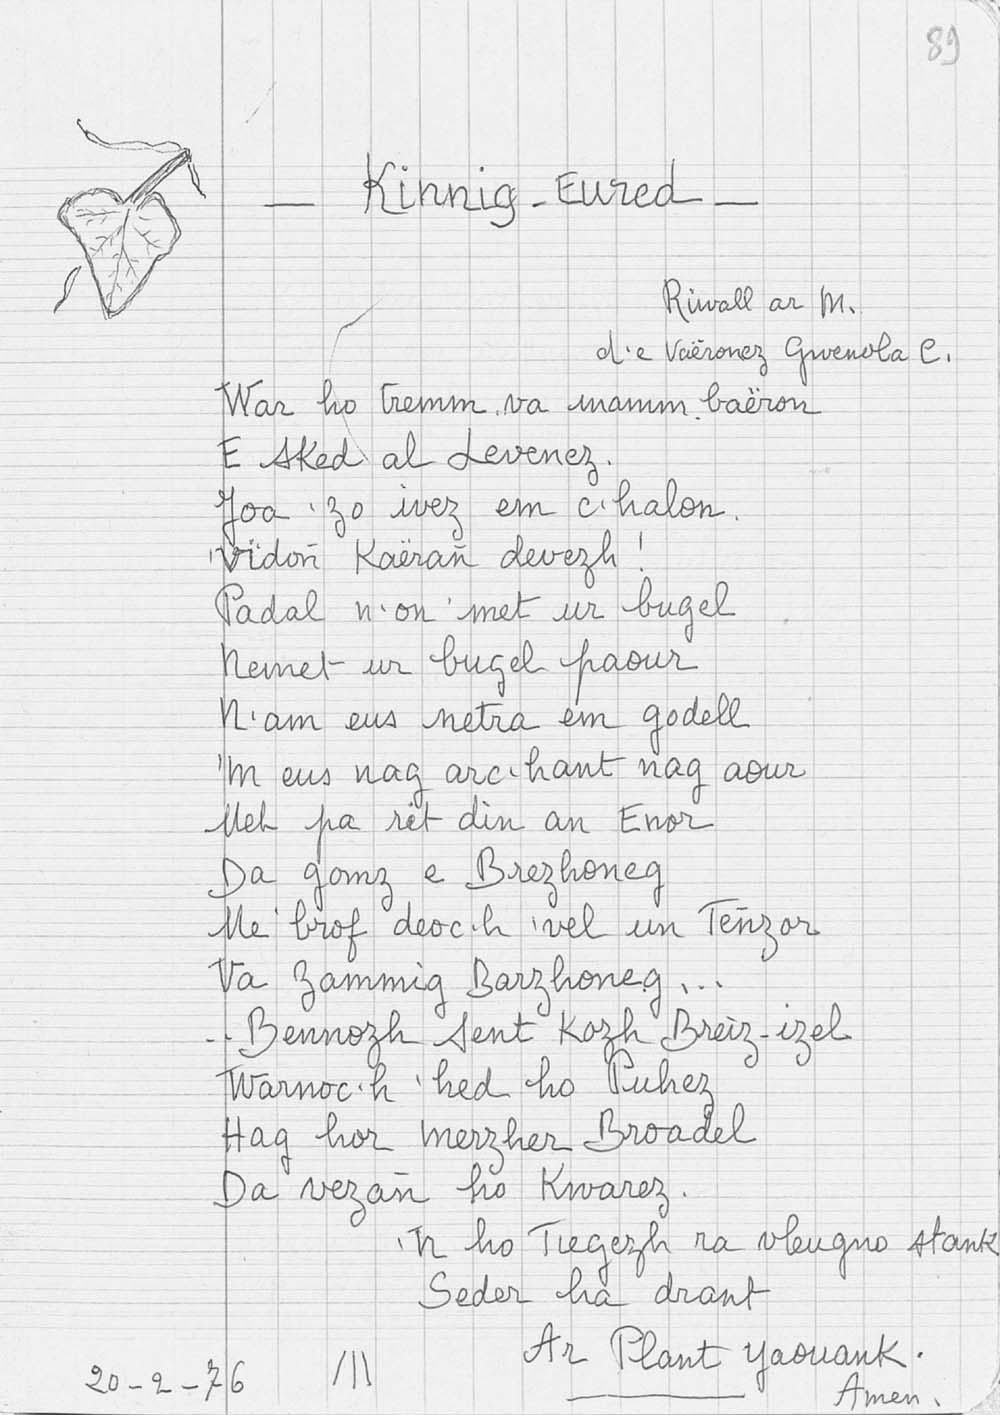 89
— Kinnig - Eured —
Riwall ar M.
d'e Vaëronez Gwenola C.
War ho tremm va mamm baëron
E sked al Levenez.
Joa 'zo ivez em c'halon.
'Vidoñ Kaërañ devezh !
Padal n'on 'met ur bugel
Nemet ur bugel paour
N'am eus netra em godell
'M eus nag arc'hant nag aour
Met pa rêt din an Enor
Da gomz e Brezhoneg
Me 'brof deoc'h 'vel un Teñzor
Va Zammig Barzhoneg ...
.. Bennozh Sent Kozh Breiz-izel
Warnoc'h 'hed ho Puhez
Hag hor Merzher Broadel
Da vezañ ho Kwarez.
'N ho Tiegezh ra vleugno stank
Seder ha drant
Ar Plant yaouank.
Amen.
20-2-76